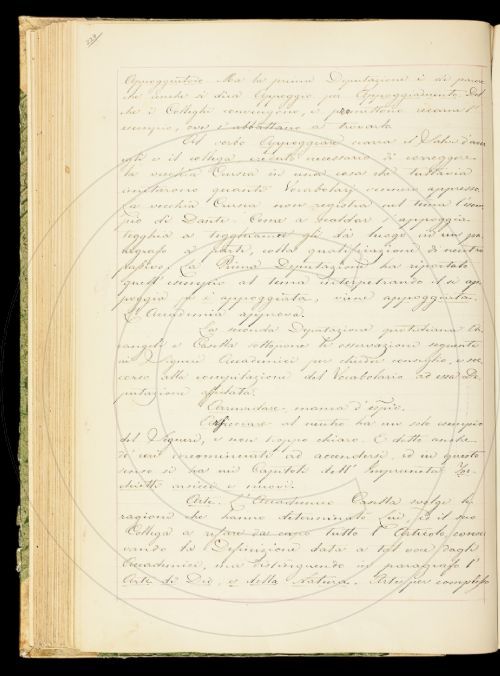 Appoggiatoje. Ma la prima Deputazione è di parere
che anche si dica Appoggio per Appoggiamento. Del
che i Colleghi convengono, e promettono recarne l'
esempio, ove s'abbattano a trovarlo.
Al verbo Appoggiare
e il collega necessario di correggere
la vecchia Crusca in una cosa che tuttavia
imitarono quanti Vocabolarj vennero appresso.
La vecchia Crusca non registra nel tema l'esem
pio di Dante. Come a scaldar s'appoggia
tegghia a tegghia gli dà luogo in un pa
ragrafo a parte, colla qualificazione di neutro
passivo. La Prima Deputazione ha riportato
quest'esempio al tema interpetrando il s'ap
poggia per è appoggiata, viene appoggiata.
L'Accademia approva.
La seconda Deputazione quotidiana
e Casella sottopone le osservazioni seguenti
ai Signori Accademici per chieder consiglio, e soc
corso alla compilazione del Vocabolario ad essa De
putazione affidata.
manca d'esempio.
Arsicciare al neutro ha un solo esempio
del e non troppo chiaro. È detto anche
di ceri incominciati ad accendersi, ed in questo
senso si ha nei Capitoli dell'Impruneta Tor
chietti arsicci e nuovi.
Arte. L'Accademico Casella svolge le
ragioni che hanno determinato lui, ed il suo
Collega a rifare da capo tutto l'Articolo, conser
vando la Definizione data a tal voce dagli
Accademici, ma distinguendo in paragrafo l'
Arte di Dio, e della Natura. Arte per complesso